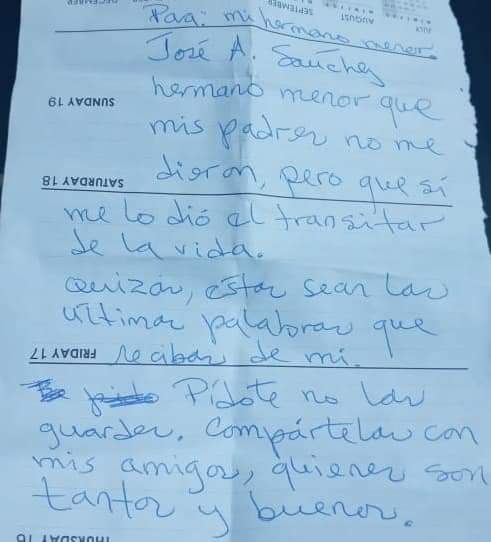 DECEMBER
SEPTEMBER
AUGUST
JULY
Para: mi hermano menor.
José A. Sánchez
hermano menor que
SUNDAY 19
mis padres no me
dieron, pero que sí
SATURDAY 18
me lo dió el transitar
de la vida.
Quizás, estas sean las
últimas palabras que
FRIDAY 17
recibas de mí.
Pídote no las
guardes. Compártelas con
mis amigos, quienes son
tantos y buenos.
THURSDAY 16